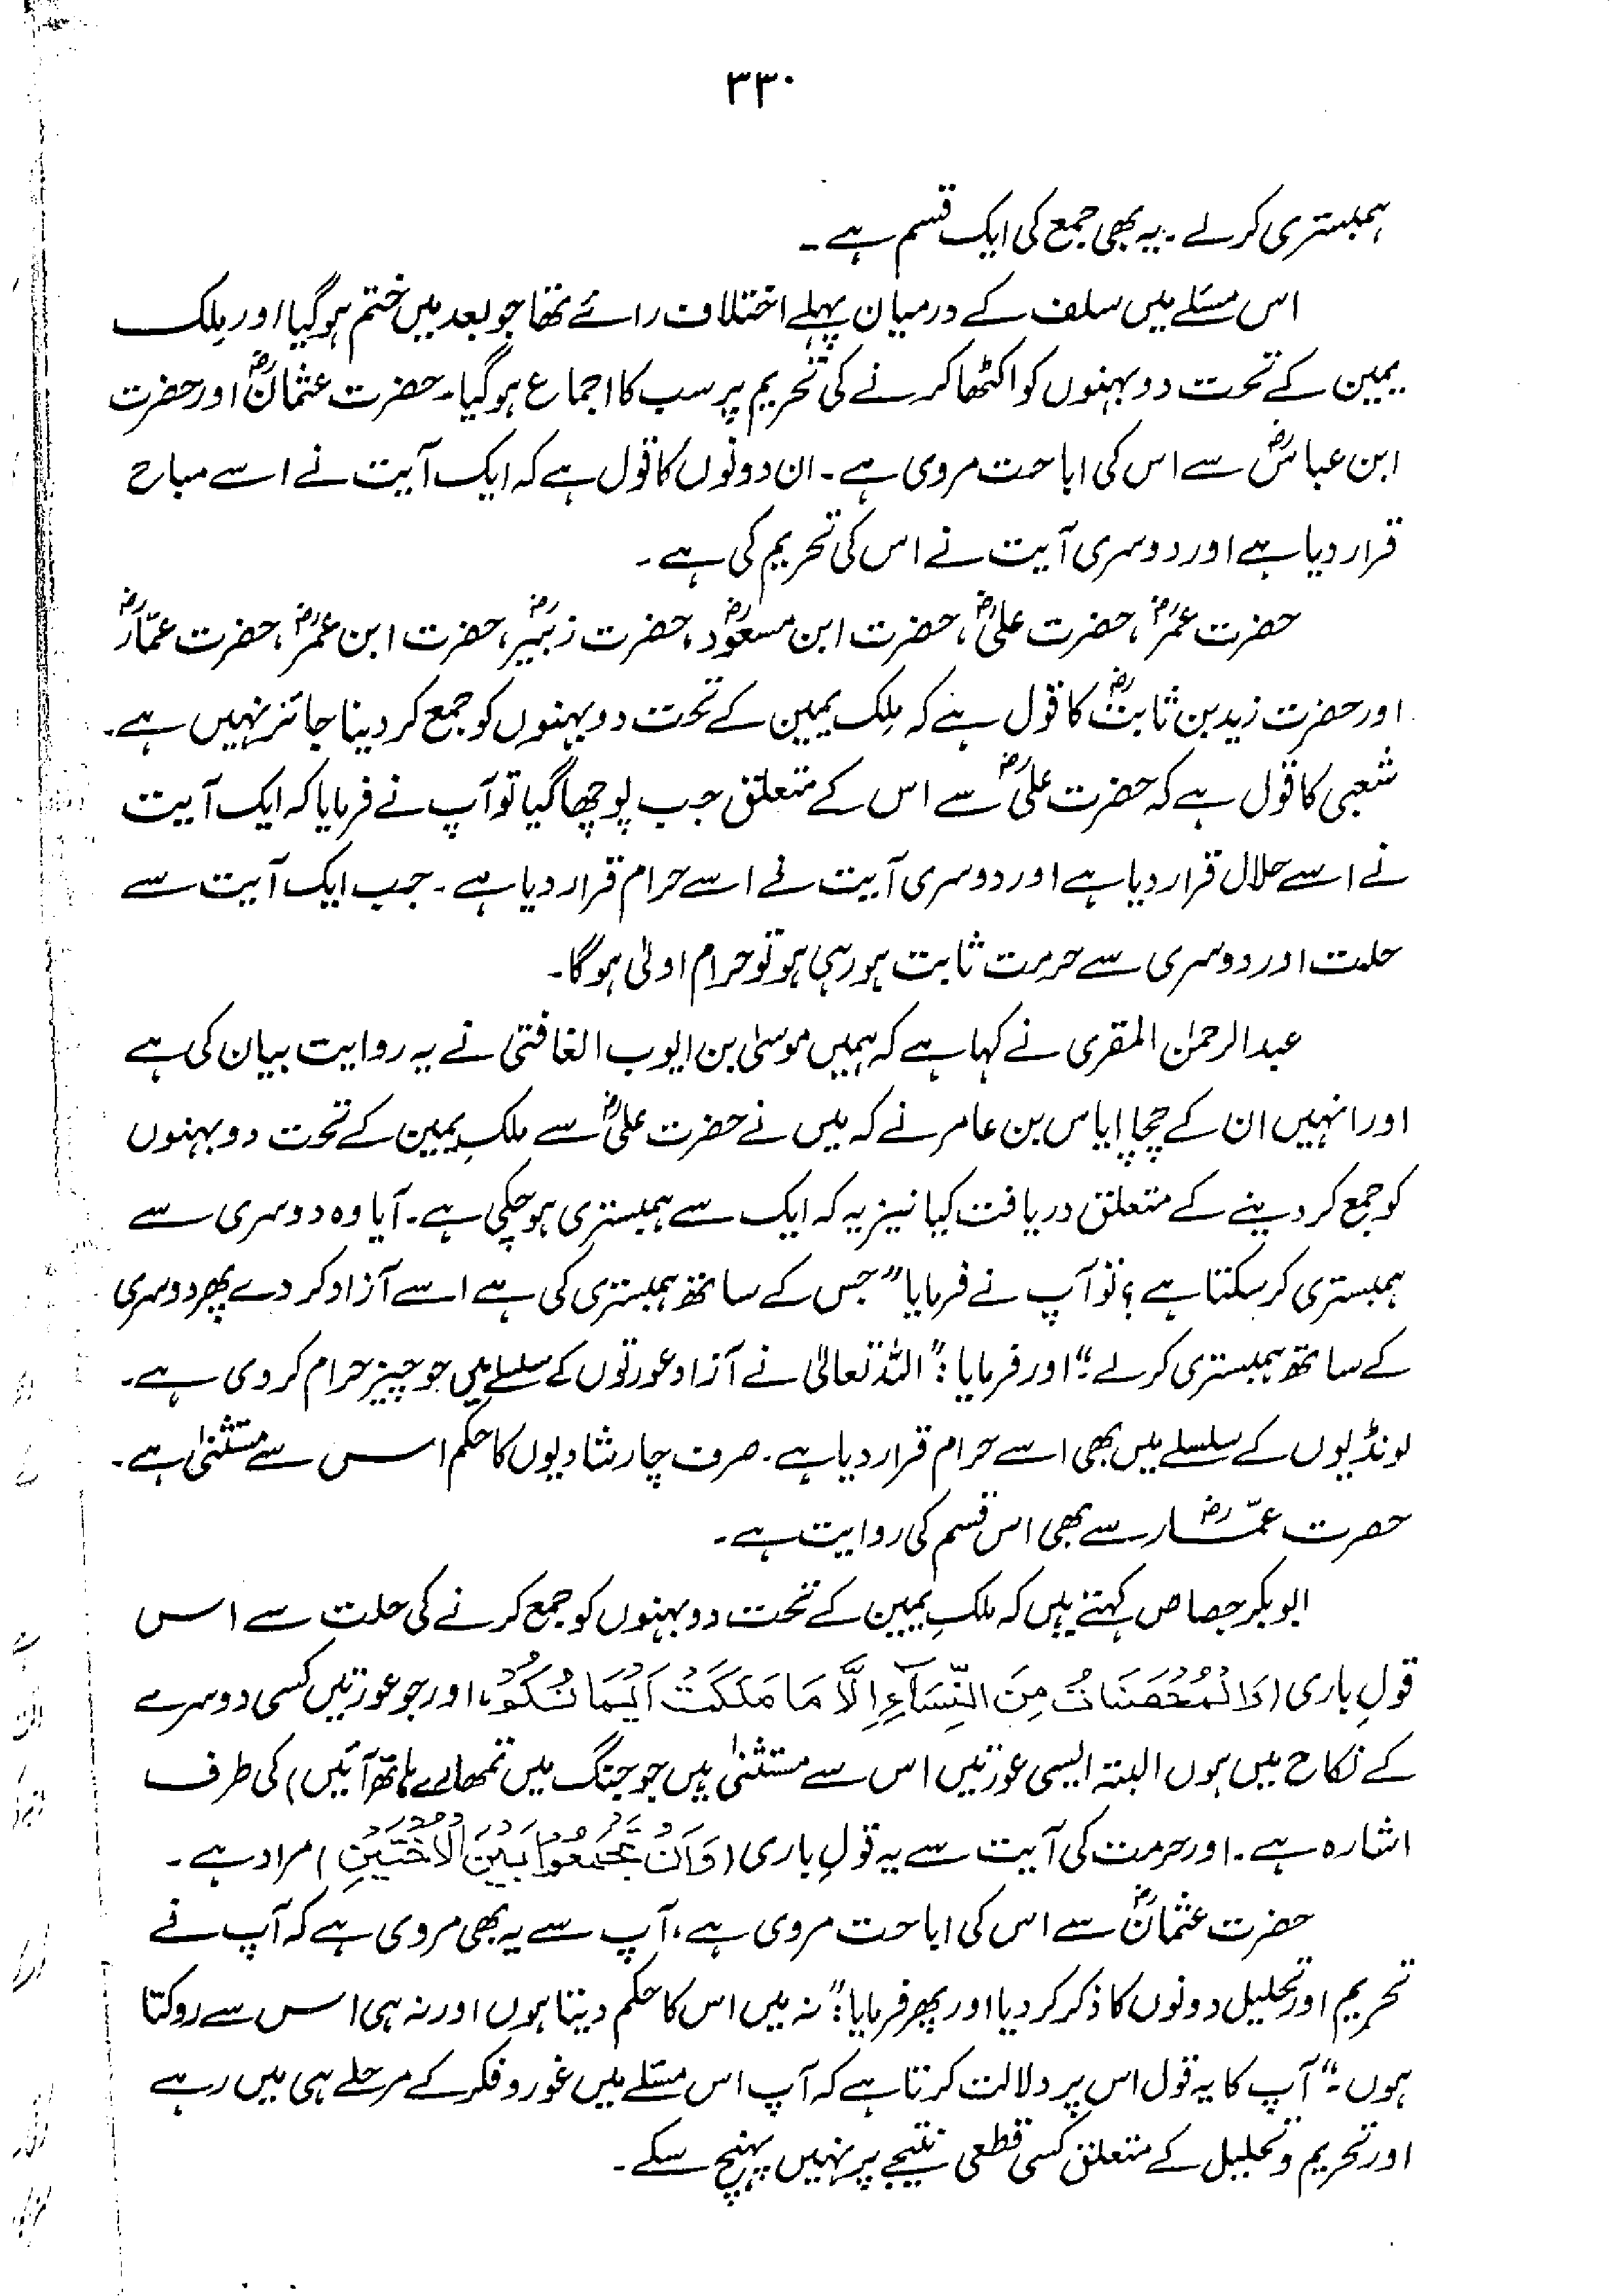 ۳۳۰
ہمبستری کرلے ۔ یہ بھی جمع کی ایک قسم ہے ۔
اس مسئلے میں سلف کے درمیان پہلے اختلاف رائے تھا جو بعد میں ختم ہوگیا اور مِلک
یمین کے تحت دو بہنوں کو اکٹھا کرنے کی تحریم پر سب کا اجماع ہوگیا ۔ حضرت عثمانؓ اور حضرت
ابن عباسؓ سے اس کی اباحت مروی ہے ۔ ان دونوں کا قول ہے کہ ایک آیت نے اسے مباح
قرار دیا ہے اور دوسری آیت نے اس کی تحریم کی ہے ۔
حضرت عمرؓ ، حضرت علیؓ ، حضرت ابن مسعودؓ ، حضرت زبیرؓ ، حضرت ابن عمرؓ ، حضرت عمّارؓ
اور حضرت زید بن ثابتؓ کا قول ہے کہ مِلک یمین کے تحت دو بہنوں کو جمع کر دینا جائز نہیں ہے ۔
شعبی کا قول ہے کہ حضرت علیؓ سے اس کے متعلق جب پوچھا گیا تو آپ نے فرمایا کہ ایک آیت
نے اسے حلال قرار دیا ہے اور دوسری آیت نے اسے حرام قرار دیا ہے ۔ جب ایک آیت سے
حلت اور دوسری سے حرمت ثابت ہو رہی ہو تو حرام اولیٰ ہوگا ۔
عبدالرحمٰن المقری نے کہا ہے کہ ہمیں موسیٰ بن ایوب الغافقی نے یہ روایت بیان کی ہے
اور انہیں ان کے چچا ایاس بن عامر نے کہ میں نے حضرت علیؓ سے ملکِ یمین کے تحت دو بہنوں
کو جمع کر دینے کے متعلق دریافت کیا نیز یہ کہ ایک سے ہمبستری ہو چکی ہے ۔ آیا وہ دوسری سے
ہمبستری کر سکتا ہے ؟ تو آپ نے فرمایا ”جس کے ساتھ ہمبستری کی ہے اسے آزاد کر دے پھر دوسری
کے ساتھ ہمبستری کرلے“ اور فرمایا : ”اللہ تعالیٰ نے آزاد عورتوں کے سلسلے میں جو چیز حرام کر دی ہے ۔
لونڈیوں کے سلسلے میں بھی اسے حرام قرار دیا ہے ۔ صرف چار شادیوں کا حکم اس سے مستثنیٰ ہے ۔
حضرت عمّارؓ سے بھی اس قسم کی روایت ہے ۔
ابوبکر جصاص کہتے ہیں کہ ملکِ یمین کے تحت دو بہنوں کو جمع کرنے کی حلت سے اس
قولِ باری (وَالْمُحْصَنَاتُ مِنَ النِّسَآءِ اِلَّا مَا مَلَكَتْ اَيْمَانُكُمْ ، اور جو عورتیں کسی دوسرے
کے نکاح میں ہوں البتہ ایسی عورتیں اس سے مستثنیٰ ہیں جو جنگ میں تمھارے ہاتھ آئیں) کی طرف
اشارہ ہے ۔ اور حرمت کی آیت سے یہ قولِ باری (وَاَنْ تَجْمَعُوْا بَيْنَ الْاُخْتَيْنِ) مراد ہے ۔
حضرت عثمانؓ سے اس کی اباحت مروی ہے ، آپ سے یہ بھی مروی ہے کہ آپ نے
تحریم اور تحلیل دونوں کا ذکر کر دیا اور پھر فرمایا : ”نہ میں اس کا حکم دیتا ہوں اور نہ ہی اس سے روکتا
ہوں ۔“ آپ کا یہ قول اس پر دلالت کرتا ہے کہ آپ اس مسئلے میں غور و فکر کے مرحلے ہی میں رہے
اور تحریم و تحلیل کے متعلق کسی قطعی نتیجے پر نہیں پہنچ سکے ۔